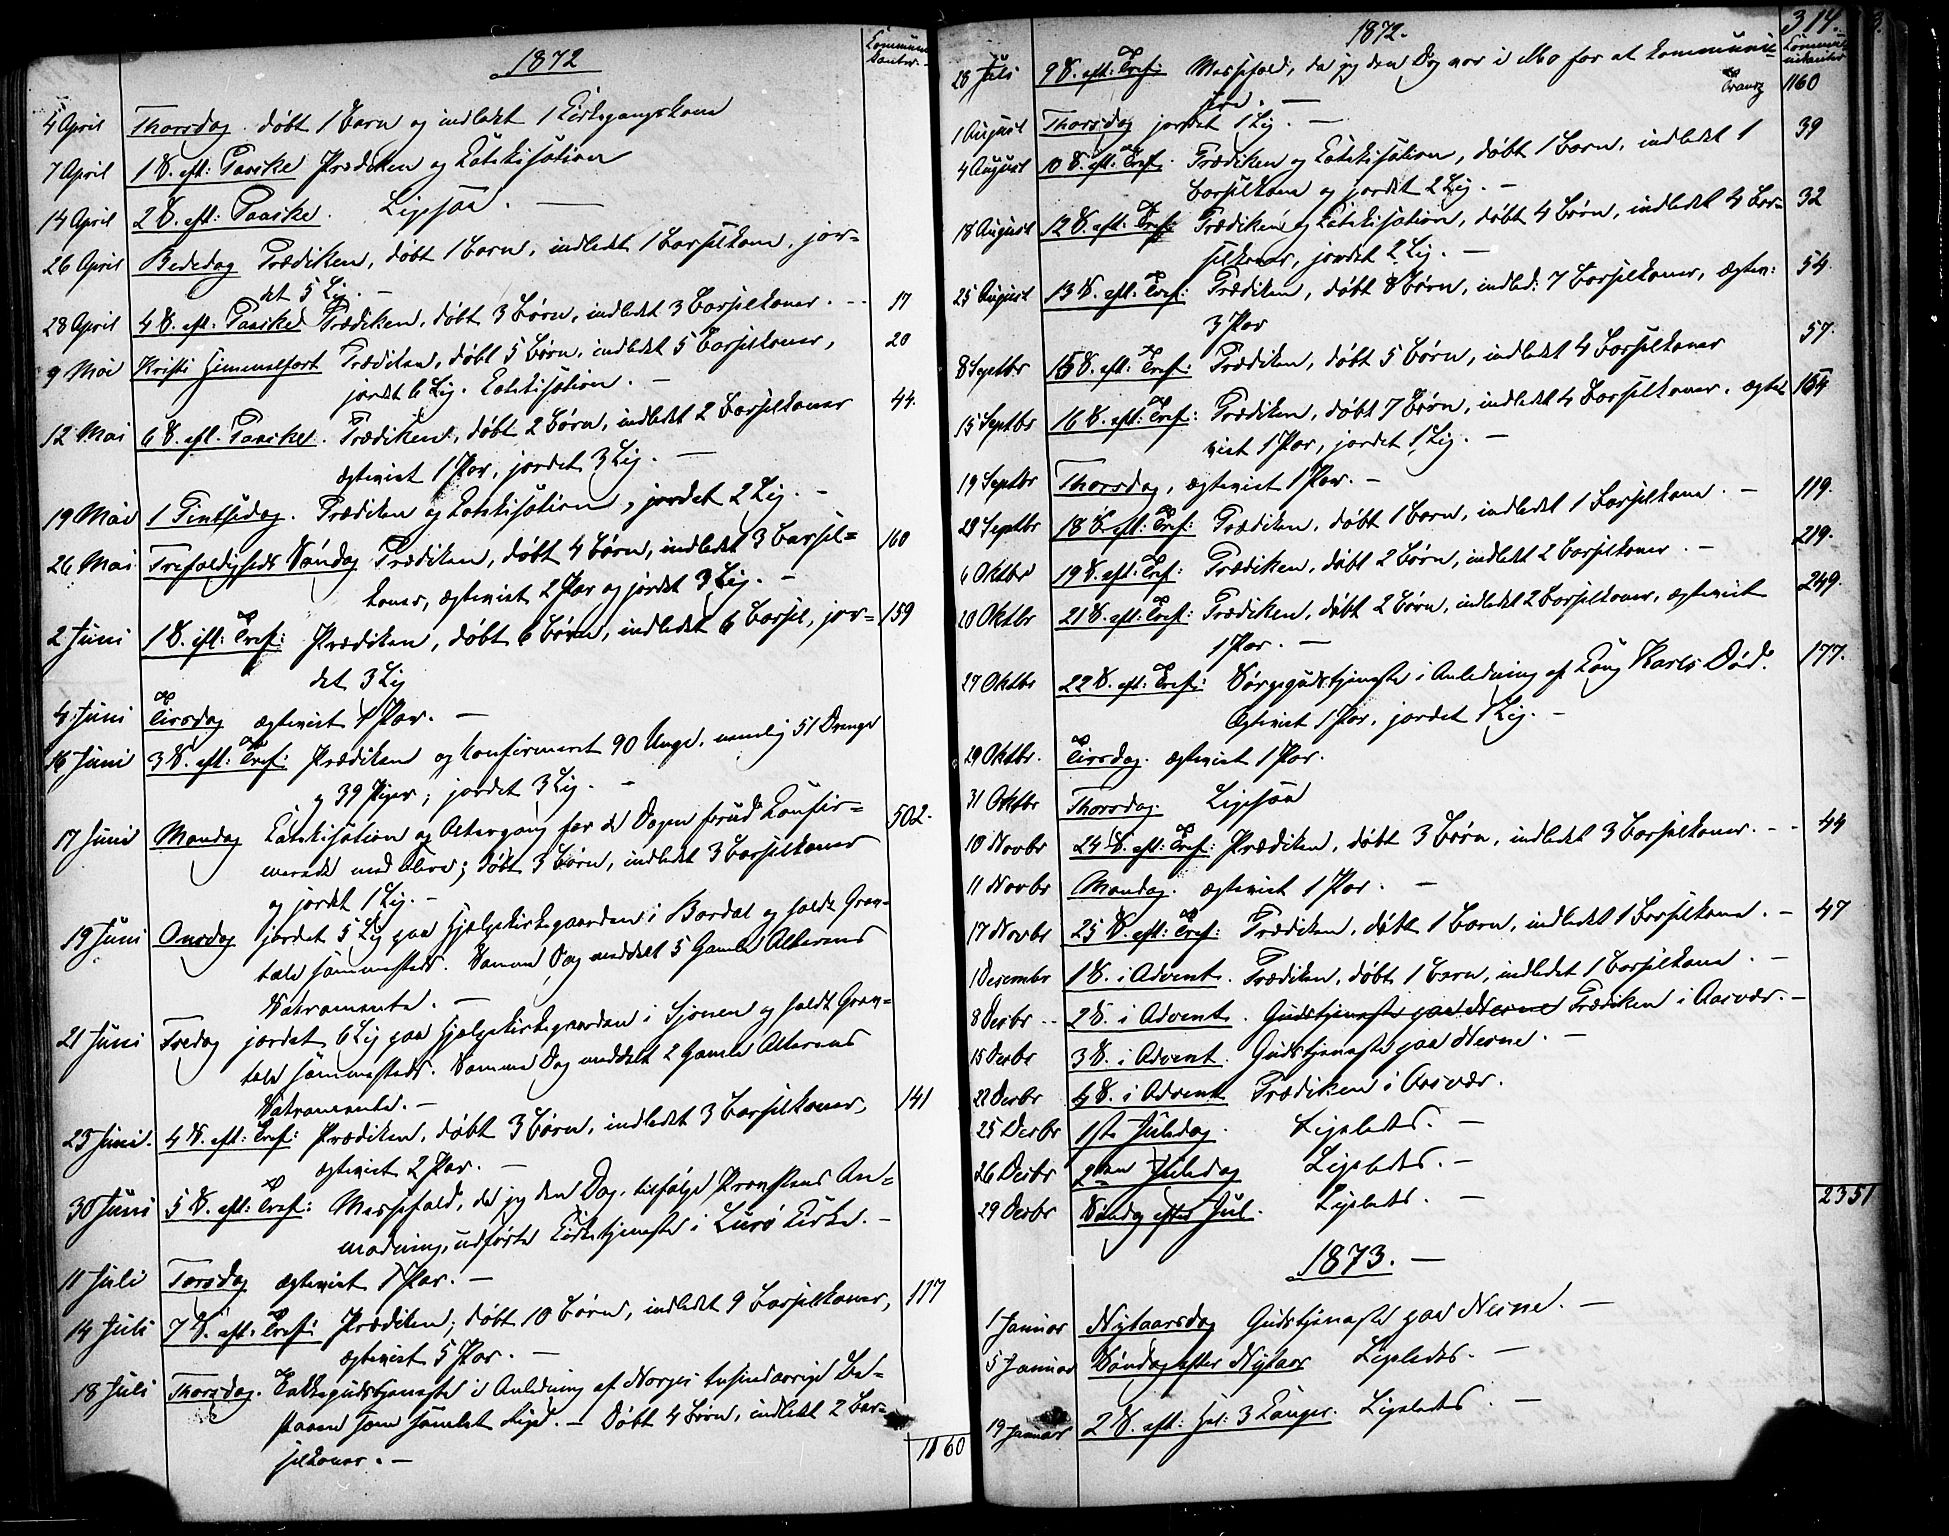 1872
Kommuni-
kanter.
4 April Thorsdag. døbt 1 Barn og indledet 1 Kirkegangskone
7 April 1 S. eft: Paaske Prædiken og Katekisation
14 April 2 S. eft: Paaske. Ligesaa. —
26 April Bededag Prædiken, døbt 1 Barn, indledet 1 Barselkone, jor-
det 5 Lig. —
28 April 4 S. eft. Paaske Prædiken, døbt 3 Børn, indledet 3 Barselkoner. — 17
9 Mai Kristi Himmelfart Prædiken, døbt 5 Børn, indledet 5 Barselkoner, 20
jordet 6 Lig. Katekisation. —
12 Mai 6 S. eft. Paaske. Prædiken, døbt 2 Børn, indledet 2 Barselkoner 44.
ægteviet 1 Par, jordet 3 Lig. —
19 Mai 1 Pintsedag. Prædiken og Katekisation, jordet 2 Lig. —
26 Mai Trefoldigheds Søndag Prædiken, døbt 4 Børn, indledet 3 Barsel= 160
koner, ægteviet 2 Par og jordet 3 Lig. —
2 Juni 1 S. eft: Tref: Prædiken, døbt 6 Børn, indledet 6 Barsel, jor= 159
det 3 Lig
4 Juni Tirsdag ægteviet 1 Par. —
16 Juni 3 S. eft: Tref: Prædiken og konfirmeret 90 Unge, nemlig 51 Drenge
og 39 Piger; jordet 3 Lig. —
17 Juni Mandag Katekisation og Altergang for de Dagen forud Konfir= 502.
merede med Flere; døbt 3 Børn, indledet 3 Barselkoner
og jordet 1 Lig. —
19 Juni Onsdag jordet 5 Lig paa Hjælpekirkegaarden i Bardal og holdt Grav=
tale sammesteds. Samme Dag meddelt 5 Gamle Alterens
Sakramente. —
21 Juni Fredag jordet 6 Lig paa Hjælpekirkegaarden i Sjonen og holdt Grav=
tale sammesteds. Samme Dag meddelt 2 Gamle Alterens
Sakramente. —
23 Juni. 4 S. eft: Tref: Prædiken, døbt 3 Børn, indledet 3 Barselkoner, 141
ægteviet 2 Par. —
30 Juni 5 S. eft: Tref: Messefald, da jeg den Dag, tilfølge Provstens An=
modning, udførte Kirketjeneste i Lurø Kirke. —
11 Juli Torsdag ægteviet 1 Par. —
14 Juli 7 S. eft: Tref: Prædiken; døbt 10 Børn, indledet 9 Barselkoner, 117
ægteviet 5 Par. —
18 Juli Thorsdag. Takkegudstjeneste i Anledning af Norges tusindaarige Be=
staaen som samlet Rige. — Døbt 4 Børn, indledet 2 Bar=
selkoner. —
1160
1872.
314.
Kommu-
nikanter
28 Juli 9 S. eft: Tref: Messefald, da jeg den Dag var i Mo for at kommunice=
rere. — Transp 1160
1 August Thorsdag jordet 1 Lig. —
4 August 10 S. eft. Tref. Prædiken og Katekisation, døbt 1 Barn, indledet 1 39
Barselkone og jordet 2 Lig. —
18 August 12 S. eft: Tref: Prædiken og Katekisation, døbt 4 Børn, indledet 4 Bar= 32
selkoner, jordet 2 Lig. —
25 August 13 S. eft: Tref: Prædiken, døbt 8 Børn, indled: 7 Barselkoner, ægtev: 54.
3 Par
8 Septbr 15 S. eft: Tref: Prædiken, døbt 5 Børn, indledet 4 Barselkoner 57.
15 Septbr 16 S. eft: Tref: Prædiken, døbt 7 Børn, indledet 4 Barselkoner, ægte= 154
viet 1 Par, jordet 1 Lig. —
19 Septbr Thorsdag, ægteviet 1 Par. —
29 Septbr 18 S. eft: Tref: Prædiken, døbt 1 Barn, indledet 1 Barselkone. — 119.
6 Oktbr 19 S. eft: Tref: Prædiken, døbt 2 Børn, indledet 2 Barselkoner. — 219.
20 Oktbr 21 S. eft: Tref: Prædiken, døbt 2 Børn, indledet 2 Barselkoner, ægteviet 249.
1 Par. —
27 Oktbr 22 S. eft: Tref: Sørgegudstjeneste i Anledning af Kong Karls Død. 177.
Ægteviet 1 Par, jordet 1 Lig. —
29 Oktbr. Tirsdag. ægteviet 1 Par.
31 Oktbr Thorsdag. Ligesaa
10 Novbr 24 S. eft: Tref: Prædiken, døbt 3 Børn, indledet 3 Barselkoner. — 44
11 Novbr Mandag. ægteviet 1 Par. —
17 Novbr 25 S. eft: Tref: Prædiken, døbt 1 Barn, indledet 1 Barselkone. — 47
1 Decembr 1 S. i Advent. Prædiken, døbt 1 Barn, indledet 1 Barselkone. —
8 Decbr 2 S. i Advent. Gudstjeneste paa Nesne Prædiken i Aasvær. —
15 Decbr 3 S. i Advent. Gudstjeneste paa Nesne. —
22 Decbr 4 S. i Advent Prædiken i Aasvær.
25 Decbr 1ste Juledag. Ligeledes. —
26 Decbr 2den Juledag Ligeledes. —
29 Decbr Søndag efter Jul. Ligeledes —
2351
1873. —
1 Januar Nytaarsdag Gudstjeneste paa Nesne. —
5 Januar Søndag efter Nytaar Ligeledes. —
19 Januar 2 S. eft: Hel: 3 Konger. Ligeledes. —